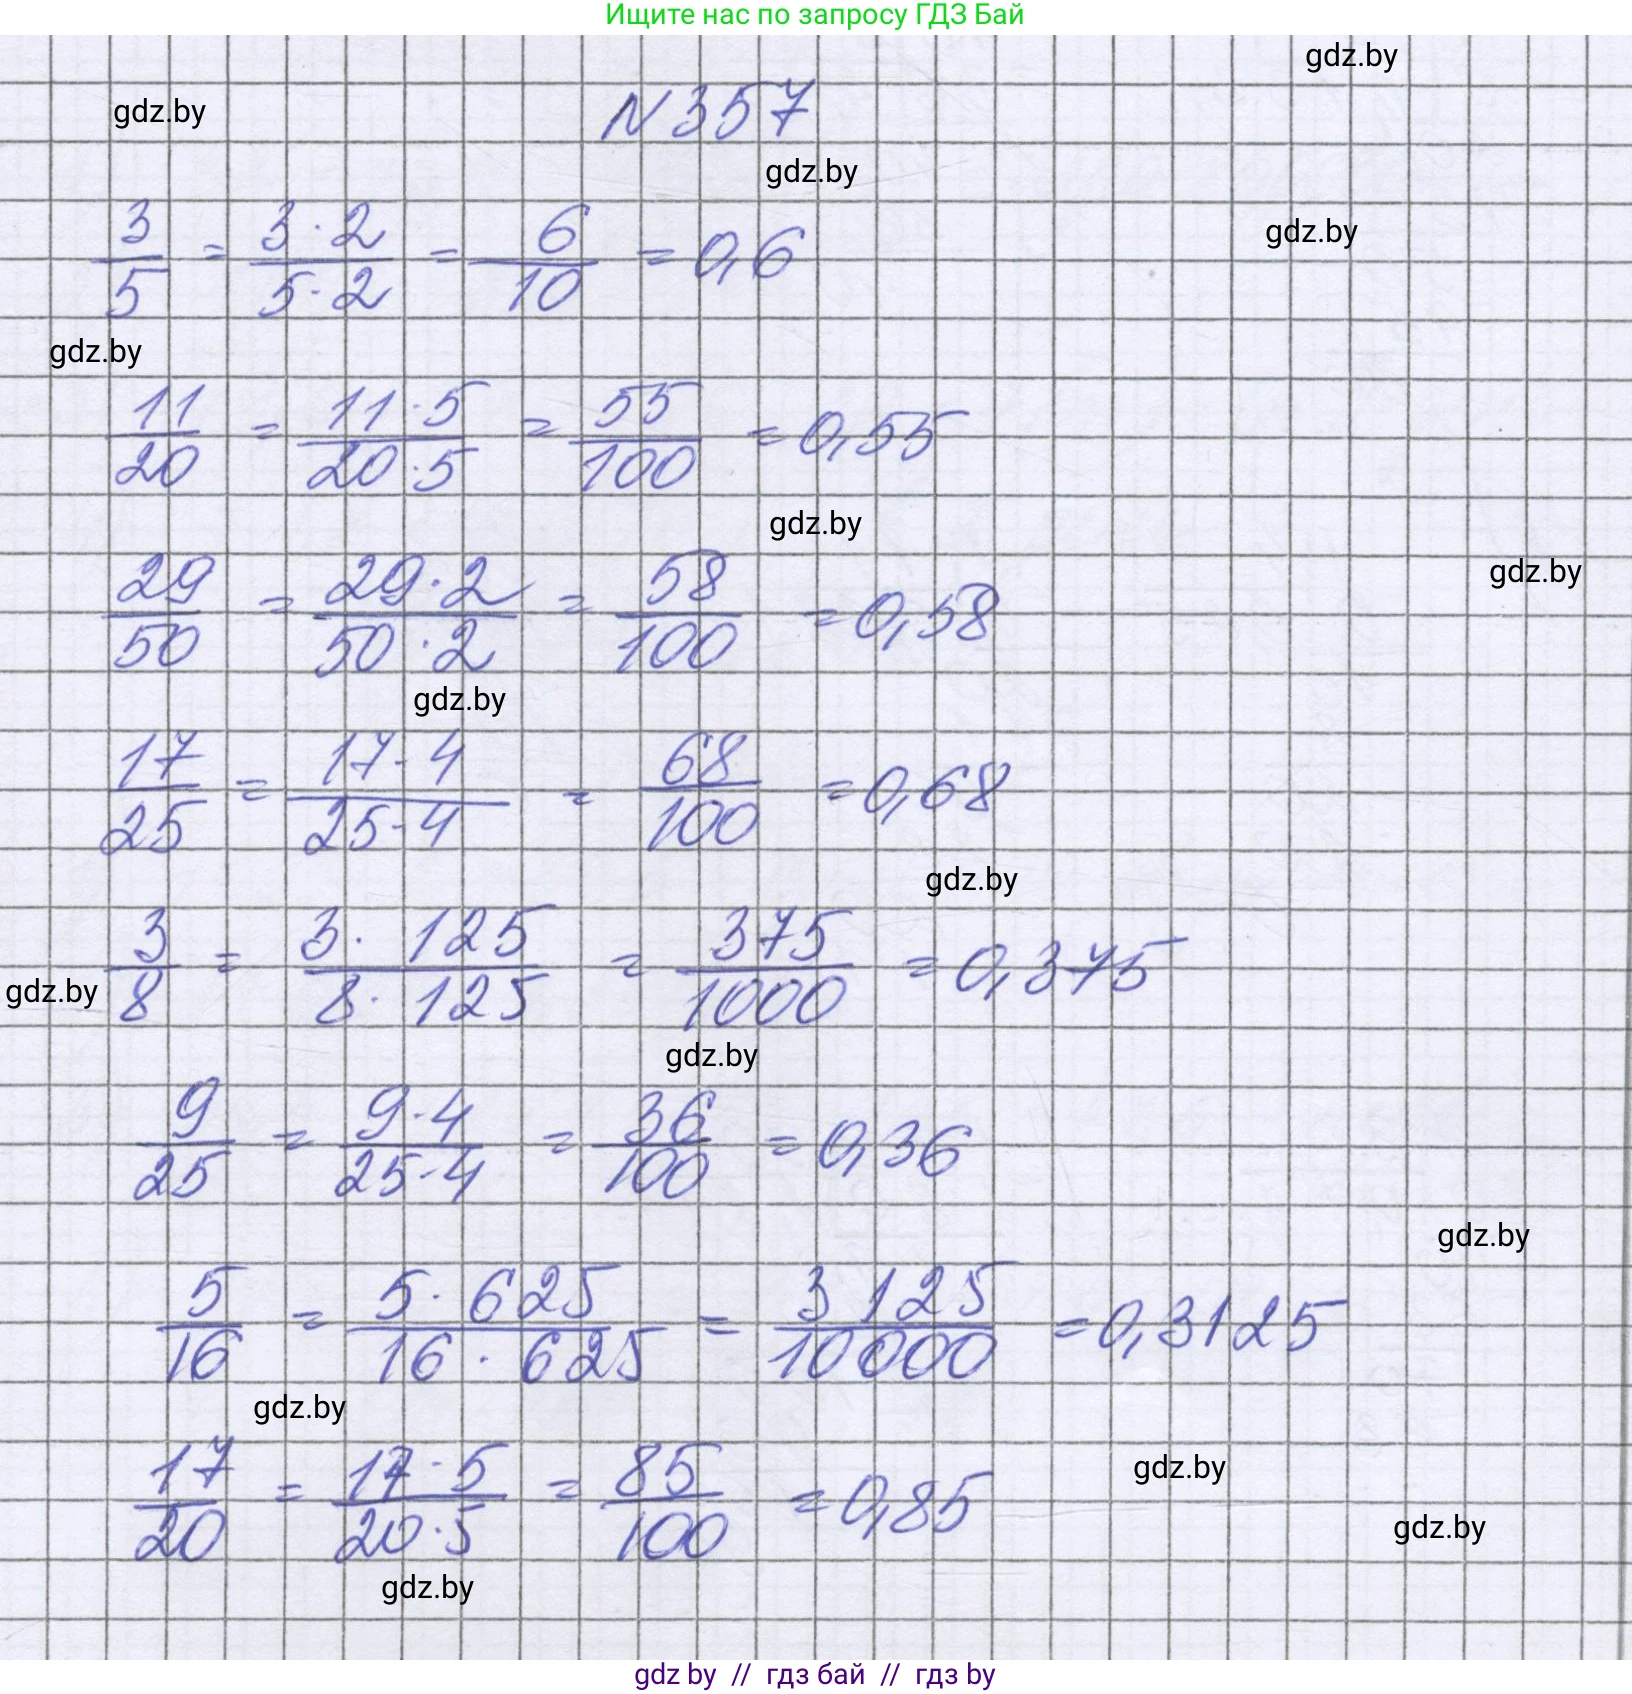 Ищите нас по запросу ГДЗ Бай
gdz.by
gdz.by
N 357
gdz.by
gdz.by
3/5 = 3·2/5·2 = 6/10 = 0,6
gdz.by
11/20 = 11·5/20·5 = 55/100 = 0,55
gdz.by
gdz.by
29/50 = 29·2/50·2 = 58/100 = 0,58
gdz.by
17/25 = 17·4/25·4 = 68/100 = 0,68
gdz.by
3/8 = 3·125/8·125 = 375/1000 = 0,375
gdz.by
gdz.by
9/25 = 9·4/25·4 = 36/100 = 0,36
gdz.by
5/16 = 5·625/16·625 = 3125/10000 = 0,3125
gdz.by
gdz.by
17/20 = 17·5/20·5 = 85/100 = 0,85
gdz.by
gdz.by
gdz by // гдз бай // гдз by